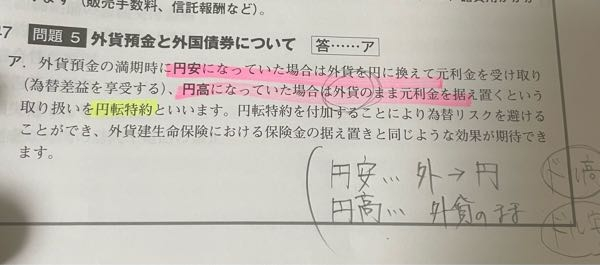 す（販売手数料、信託報酬など）。
27 問題 5 外貨預金と外国債券について 答……ア
ア．外貨預金の満期時に円安になっていた場合は外貨を円に換えて元利金を受け取り
（為替差益を享受する）、円高になっていた場合は外貨のまま元利金を据え置くという
取り扱いを円転特約といいます。円転特約を付加することにより為替リスクを避ける
ことができ、外貨建生命保険における保険金の据え置きと同じような効果が期待でき
ます。
円安… 外→円 ドル高
円高… 外貨のまま ドル安